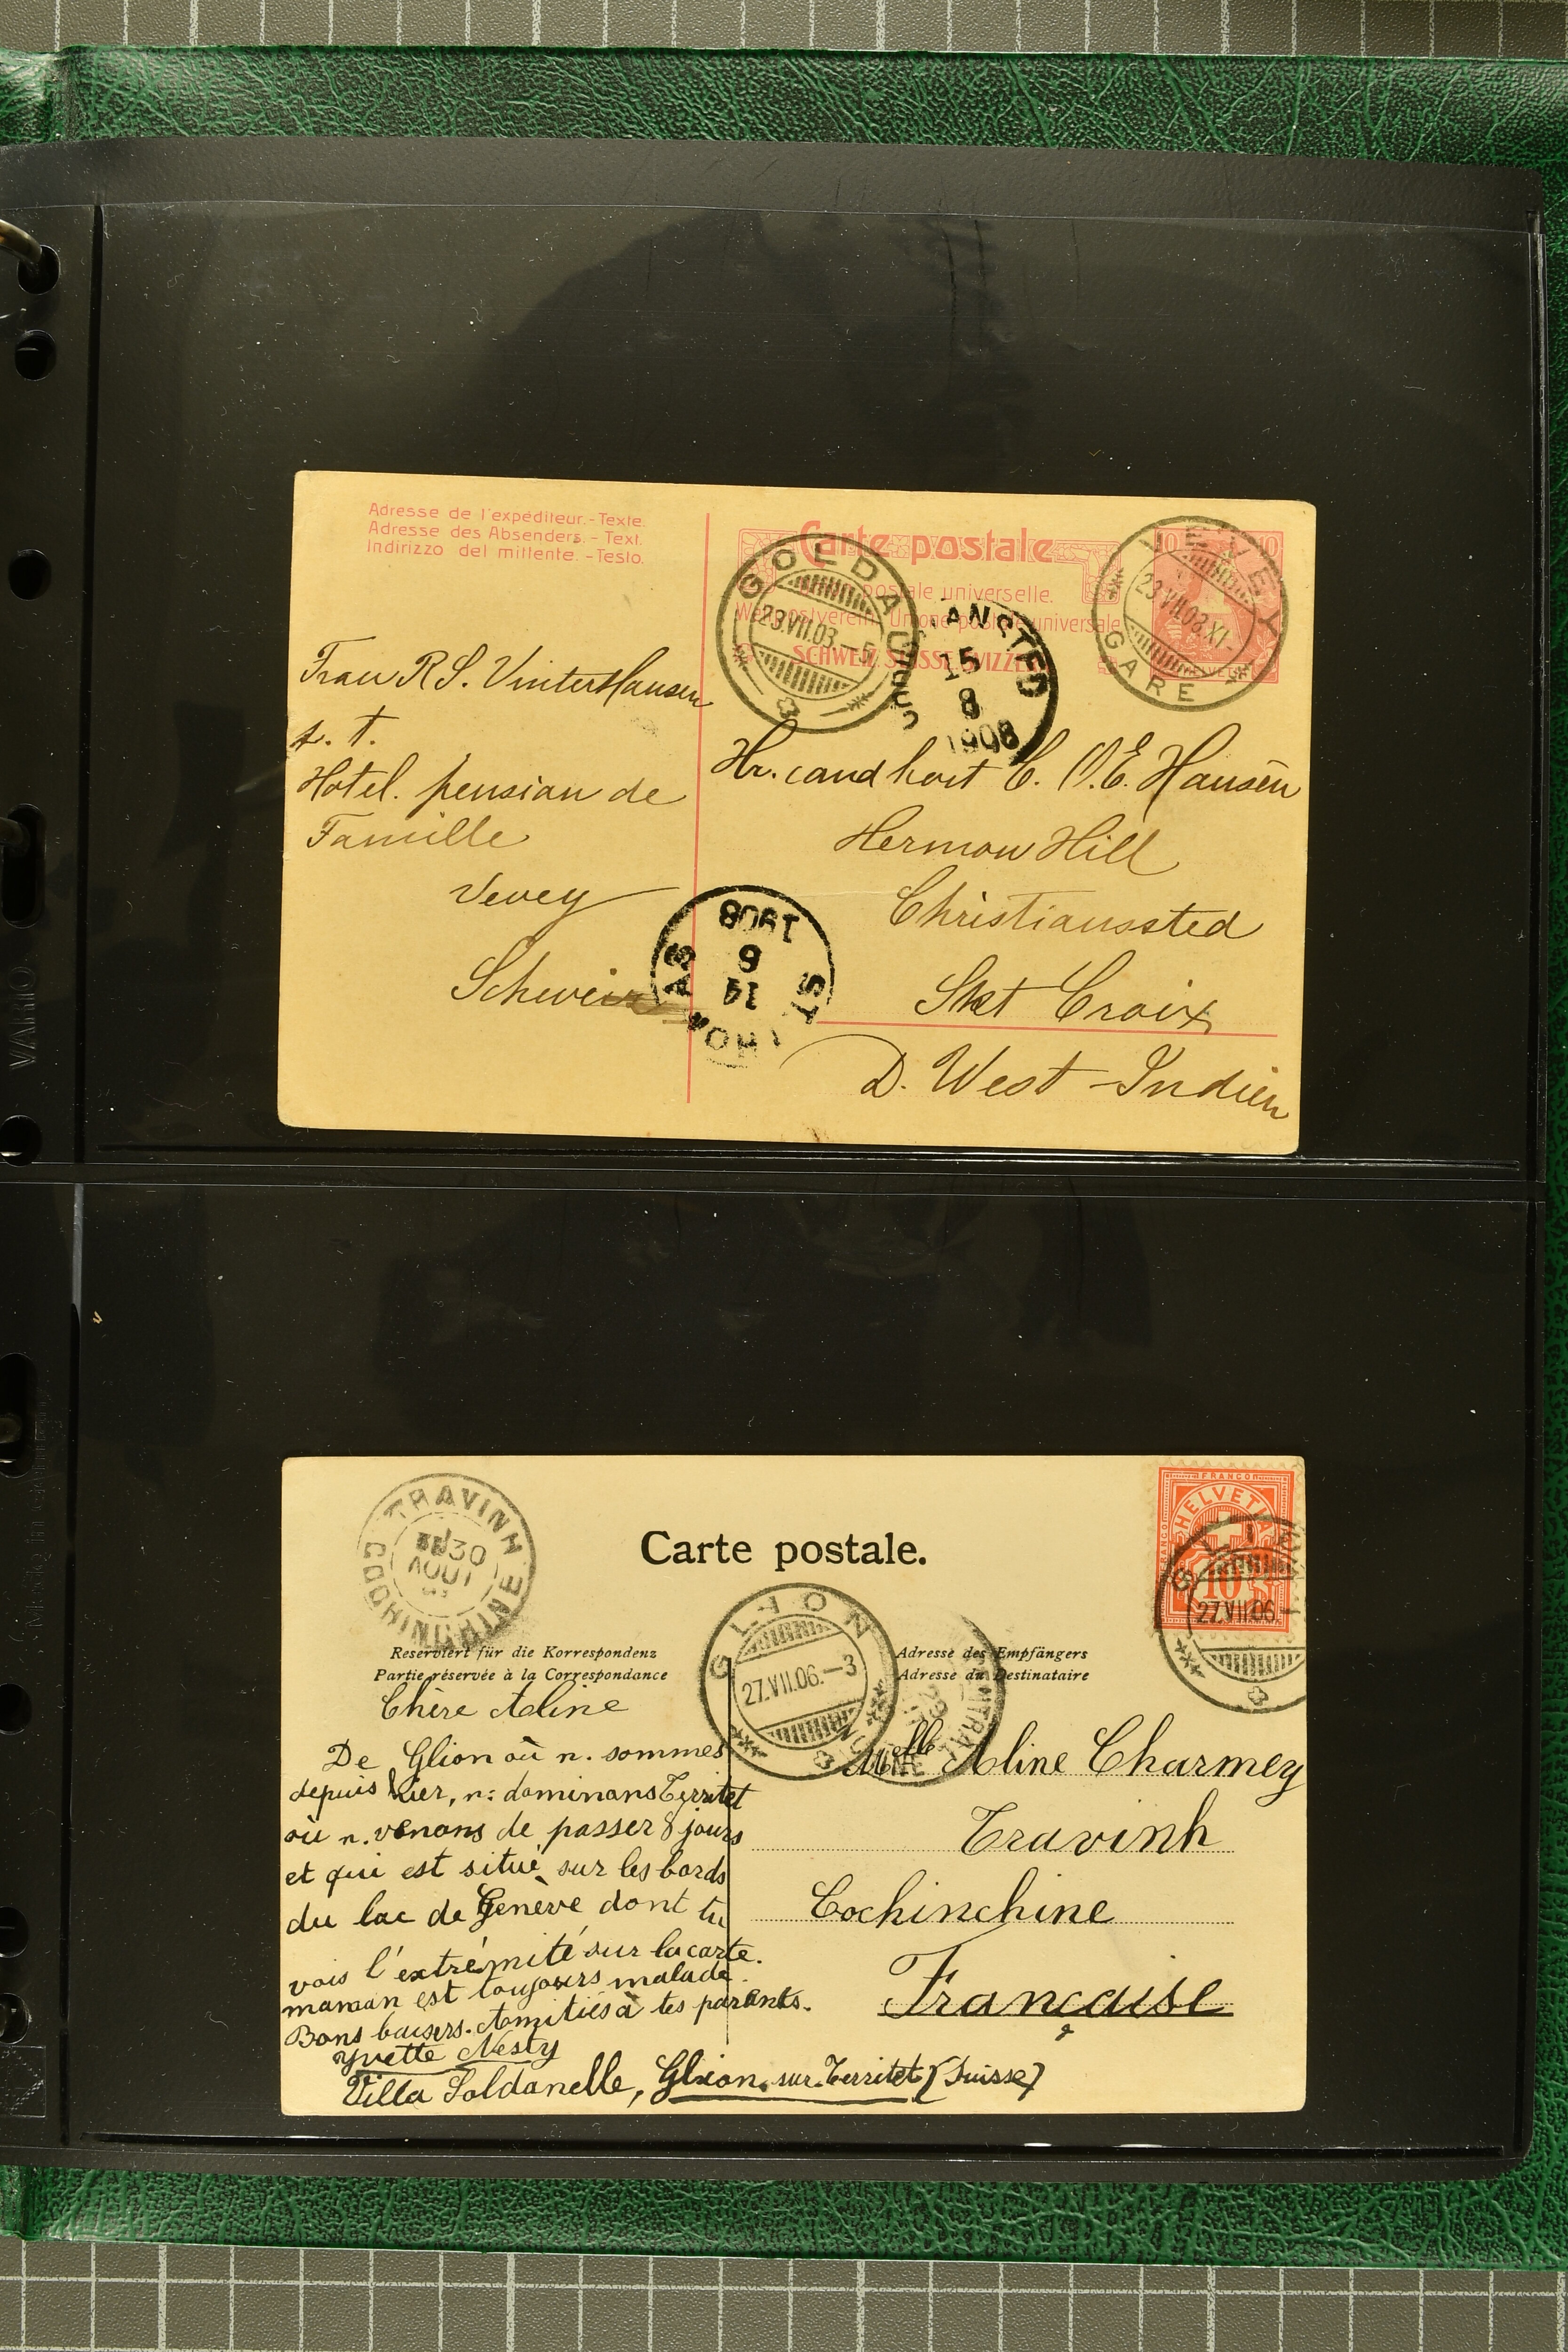 Adresse de l'expéditeur.-Texte.
Adresse des Absenders.- Text.
Indirizzo del mittente.-Testo.
Carte postale
postale universelle.
Weltpostverein. Unione postale universale
SCHWEIZ. SUISSE. SVIZZERA.
10 10
VEVEY
23.VII.08.XI-
GARE
GOLDAU
23.VII.08.-5
ANSTED
15
8
1908
Frau R S. Vinter Hansen
p. t.
Hotel. pension de
Famille
Vevey
Schweiz
Hr. cand hort C. O.E. Hansen
Hermon Hill
Christianssted
Skt Croix
D. West-Indien
ST THOMAS
14
8
1908
VARIO
TRAVINH
30
AOUT
COCHINCHINE
Carte postale.
FRANCO
HELVETIA
10
27.VII.06.-
GLION
27.VII.06.-3
Reserviert für die Korrespondenz
Partie réservée à la Correspondance
Adresse des Empfängers
Adresse du Destinataire
Chère Aline
De Glion où n. sommes
depuis hier, n: dominons Territet
où n. venons de passer 8 jours
et qui est situé sur les bords
du lac de Genève dont tu
vois l'extrémité sur la carte.
maman est toujours malade.
Bons baisers. Amitiés à tes parents.
Yvette Nesty
Villa Soldanelle, Glion sur Territet (Suisse)
Melle Aline Charmey
Travinh
Cochinchine
Française